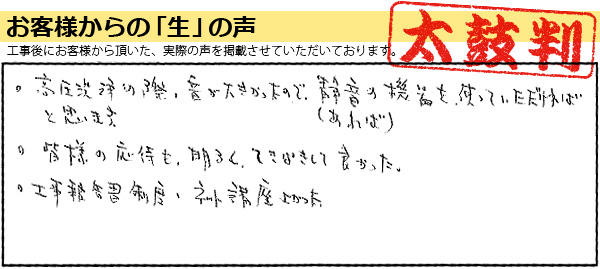 お客様からの「生」の声
工事後にお客様から頂いた、実際の声を掲載させていただいております。
太鼓判
。高圧洗浄の際、音が大きかったので、静音の機器を使っていただければ
と思います (あれば)
。皆様の応待も、明るく、てきぱきして良かった。
。工事報告書制度、ネット講座よかった